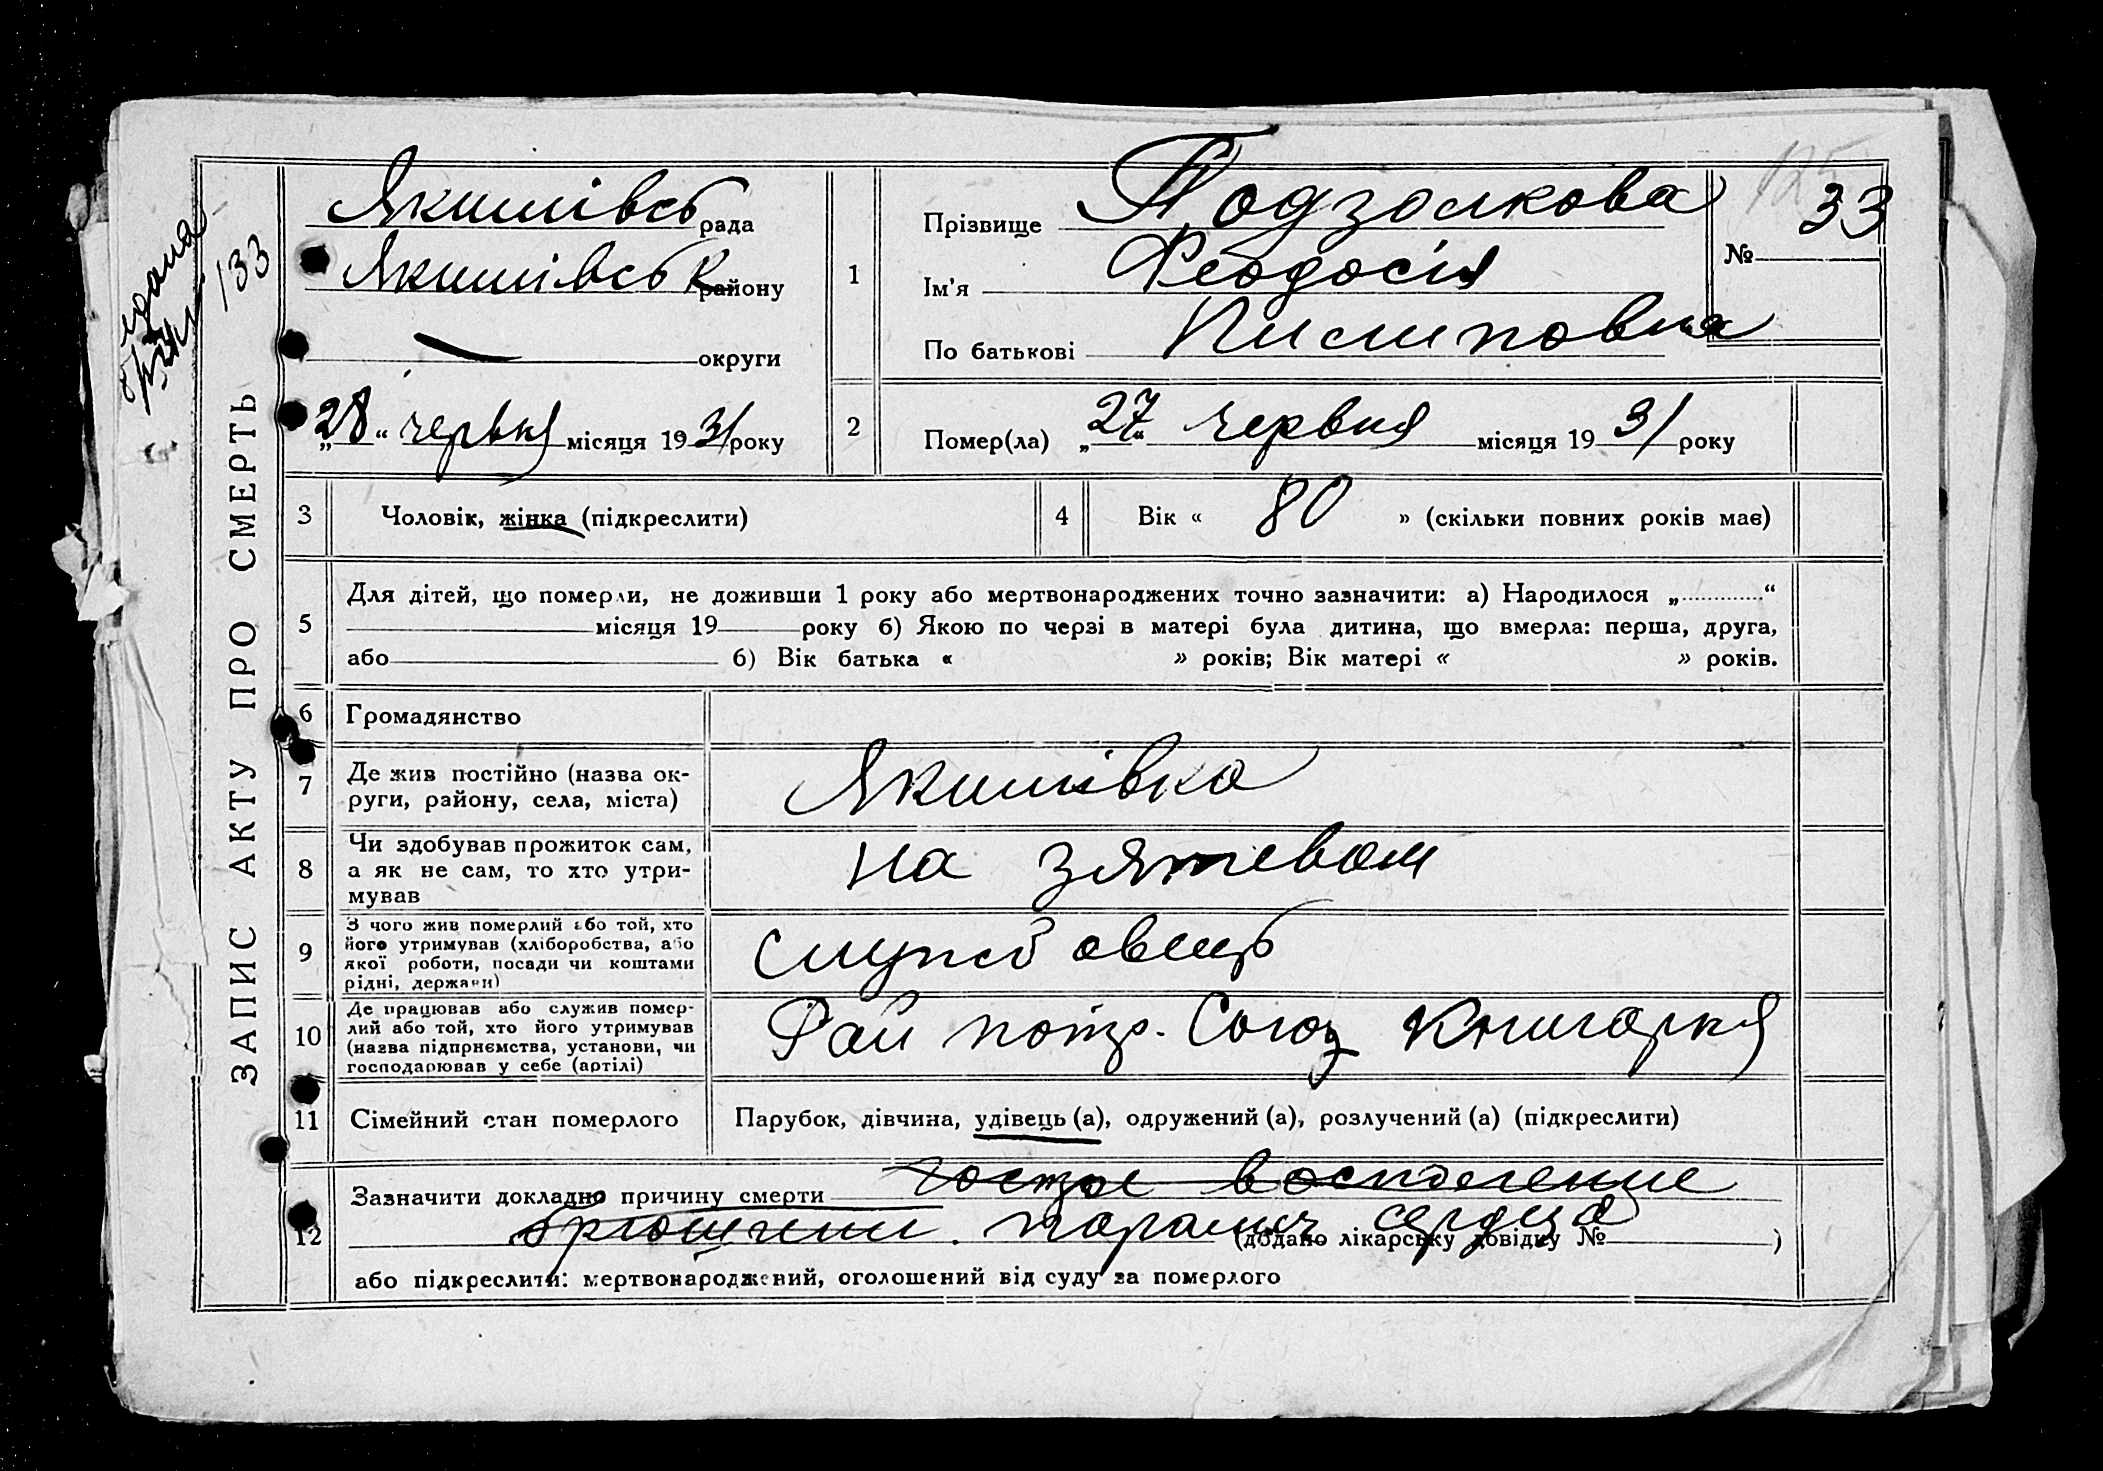 ЗАПИС АКТУ ПРО СМЕРТЬ
133
Якимівсь рада
Якимівськ району
округи
„28“ червня місяця 1931 року
1
Прізвище Подзолкова
Ім'я Феодосія
По батькові Пилиповна
125
№ 33
2
Помер(ла) „27“ червня місяця 1931 року
3 Чоловік, жінка (підкреслити)
4 Вік « 80 » (скільки повних років має)
5 Для дітей, що померли, не доживши 1 року або мертвонароджених точно зазначити: а) Народилося „ “
місяця 19 року б) Якою по черзі в матері була дитина, що вмерла: перша, друга,
або б) Вік батька « » років; Вік матері « » років.
6 Громадянство
7 Де жив постійно (назва ок-
руги, району, села, міста)
Якимівка
8 Чи здобував прожиток сам,
а як не сам, то хто утри-
мував
на зятевом
9 З чого жив померлий або той, хто
його утримував (хліборобства, або
якої роботи, посади чи коштами
рідні, держави)
службовець
10 Де працював або служив помер-
лий або той, хто його утримував
(назва підприємства, установи, чи
господарював у себе (артілі)
Рай потр. Союз Книгарня
11 Сімейний стан померлого
Парубок, дівчина, удівець (а), одружений (а), розлучений (а) (підкреслити)
12 Зазначити докладно причину смерти воспаление
брюшини. паралич сердца (додано лікарську довідку № )
або підкреслити: мертвонароджений, оголошений від суду за померлого